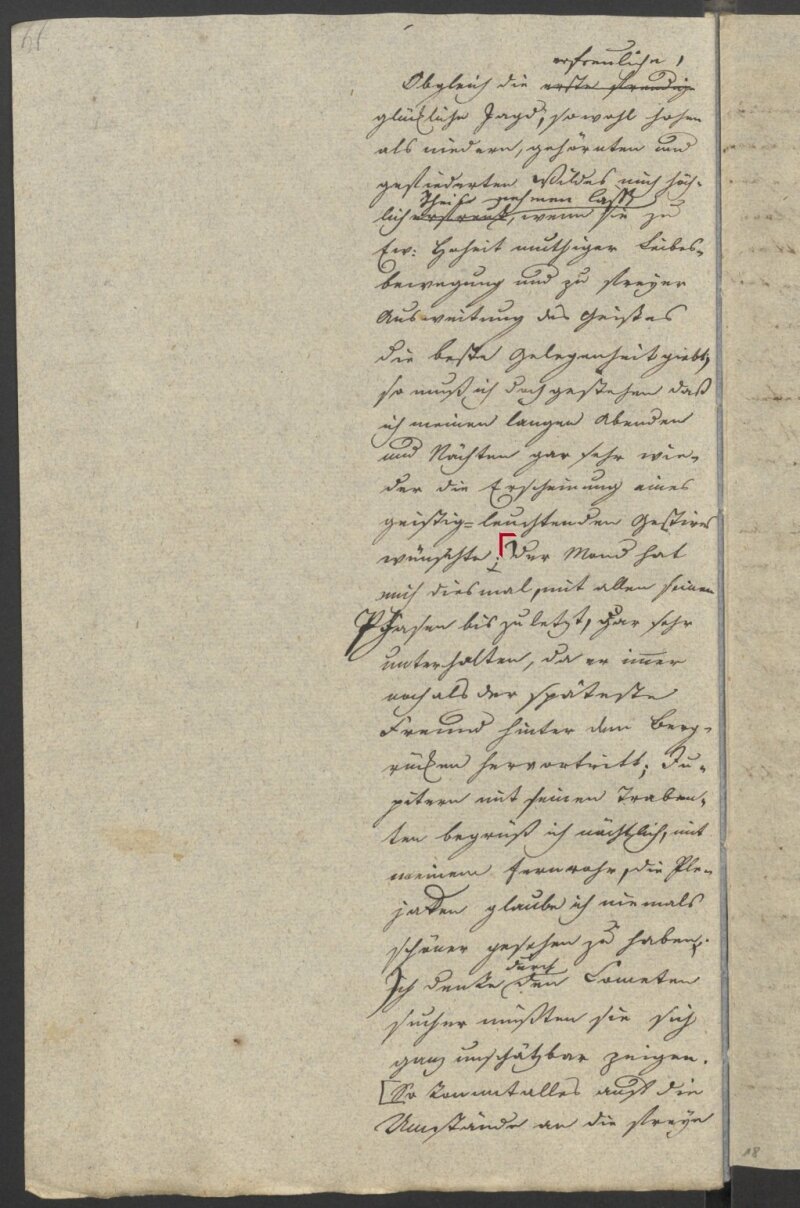 erfreuliche,
Obgleich die erste freudige
glückliche Jagd, sowohl hohen
als niedern, gehörnten und
gefiederten Wildes mich höch-
Theil nehmen lässt
lich erfreut, wenn sie zu
Ew: Hoheit muthiger Leibes-
bewegung und zu freyer
Ausweitung des Geistes
die beste Gelegenheit giebt,
so muß ich doch gestehen daß
ich meinen langen Abenden
und Nächten gar sehr wie-
der die Erscheinung eines
geistig-leuchtenden Gestirns
wünschte; der Mond hat
mich diesmal, mit allen seinen
Phasen bis zuletzt, gar sehr
unterhalten, da er immer
noch als der späteste
Freund hinter dem Berg-
rücken hervortritt; Ju-
pitern mit seinen Traban-
ten begrüß ich nächtlich, mit
meinem Fernrohr, die Ple-
jaden glaube ich niemals
schöner gesehen zu haben.
durch
Ich denke den Cometen
sucher müßten sie sich
ganz unschätzbar zeigen.
So kommt alles auf die
Umstände an die freye
18